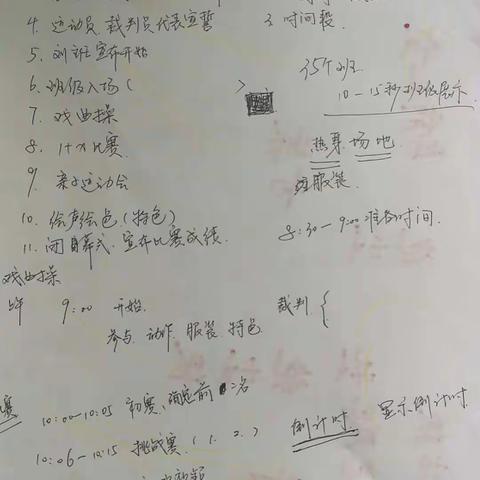 4. 运动员 裁判员代表宣誓
3. 时间段
5. 刘班宣布开始
35个班
6. 班级入场（ ）
10-15秒班级展示
7. 戏曲操
8. 1+X比赛
热身 场地
9. 亲子运动会
服装
10. 绘声绘色（特色）
8:30-9:00 准备时间
11. 闭幕式 宣布比赛成绩
戏曲操
9:00 开始
裁判｛
参与 动作 服装 特色
赛
10:00-10:05 初赛 确定前 二名
倒计时 显示倒计时
10:06-10:15 挑战赛（1. 2.）